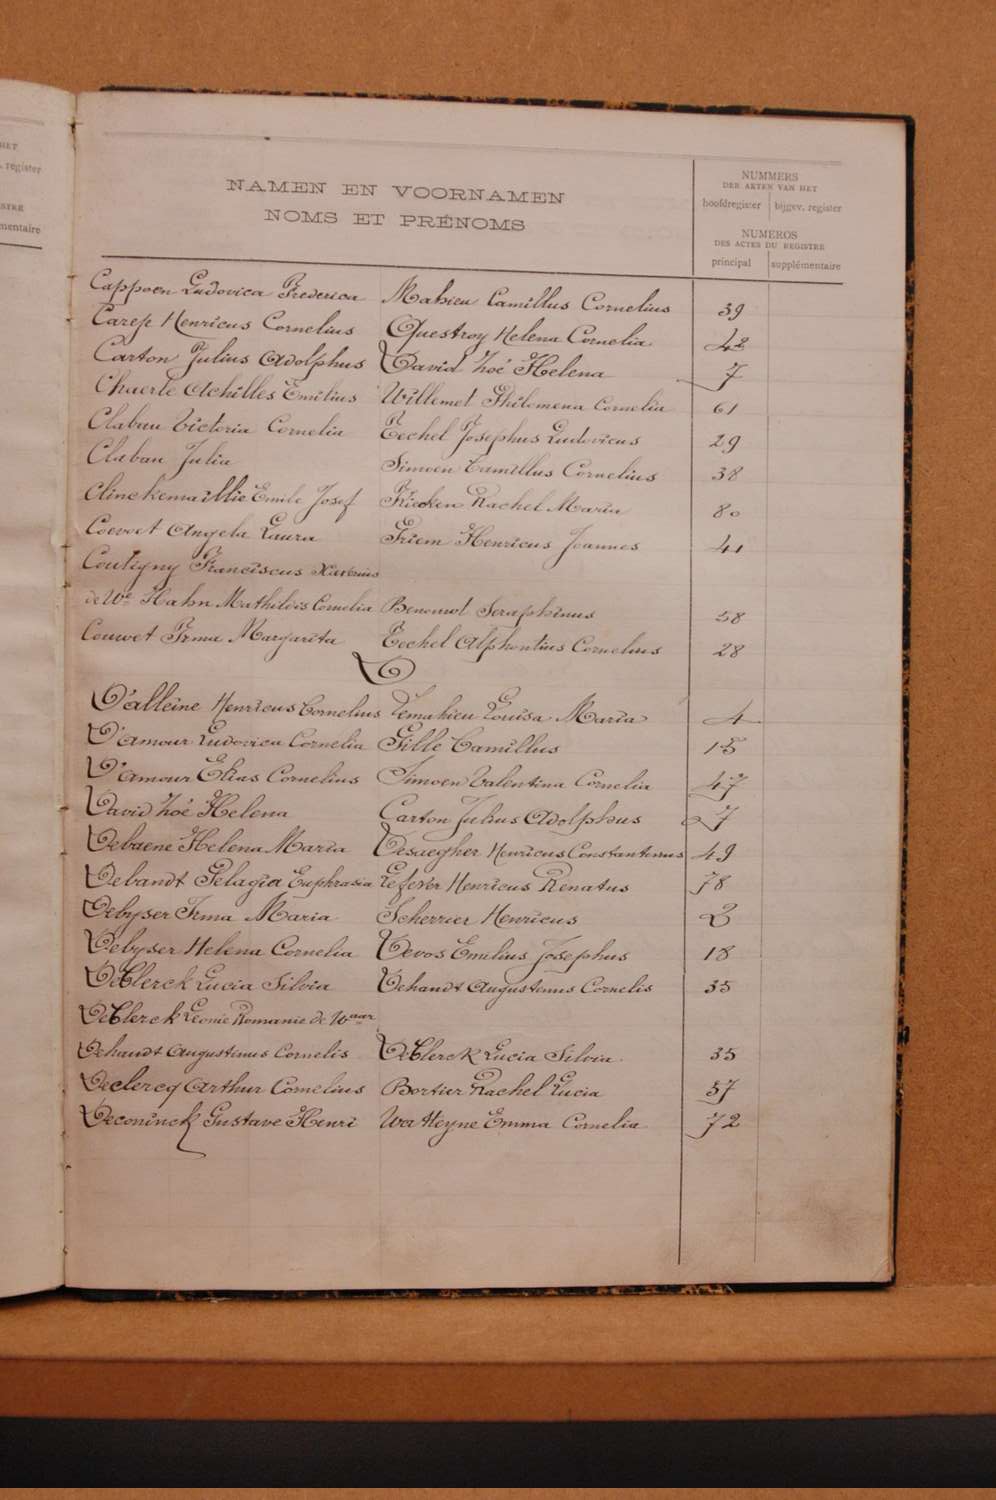 HET
. register
STRE
mentaire
NAMEN EN VOORNAMEN
NOMS ET PRÉNOMS
NUMMERS
DER AKTEN VAN HET
hoofdregister bijgev. register
NUMEROS
DES ACTES DU REGISTRE
principal supplémentaire
Cappoen Ludovica Frederica Mahieu Camillus Cornelius 39
Carep Henricus Cornelius Questroy Helena Cornelia 42
Carton Julius Adolphus David Zoé Helena 7
Chaerle Achilles Emilius Willemet Philomena Cornelia 61
Clabau Victoria Cornelia Pechel Josephus Ludovicus 29
Claban Julia Simoen Camillus Cornelius 38
Clinckemaillie Emile Josef Fricken Rachel Maria 80
Coevoet Angela Laura Priem Henricus Joannes 41
Coutigny Franciscus Xaverius
de We Hahn Mathildis Cornelia Benauwt Seraphinus 58
Couwet Irma Margarita Pechel Alphontius Cornelius 28
D
D'alleine Henricus Cornelius Lemahieu Louisa Maria 4
D'amour Ludovica Cornelia Gille Camillus 15
D'amour Elias Cornelius Simoen Valentina Cornelia 47
David Zoé Helena Carton Julius Adolphus 7
Debaene Helena Maria Desaegher Henricus Constantinus 49
Debandt Pelagia Euphrasia Lefever Henricus Renatus 78
Debyser Irma Maria Scherrier Henricus 2
Debyser Helena Cornelia Devos Emilius Josephus 18
DeClerck Lucia Silvia Dehandt Augustinus Cornelis 35
DeClerck Leonie Romanie de Waar
Dehandt Augustinus Cornelis DeClerck Lucia Silvia 35
Declercq Arthur Cornelius Bortier Rachel Lucia 57
Deconinck Gustave Henri Watteyne Emma Cornelia 72